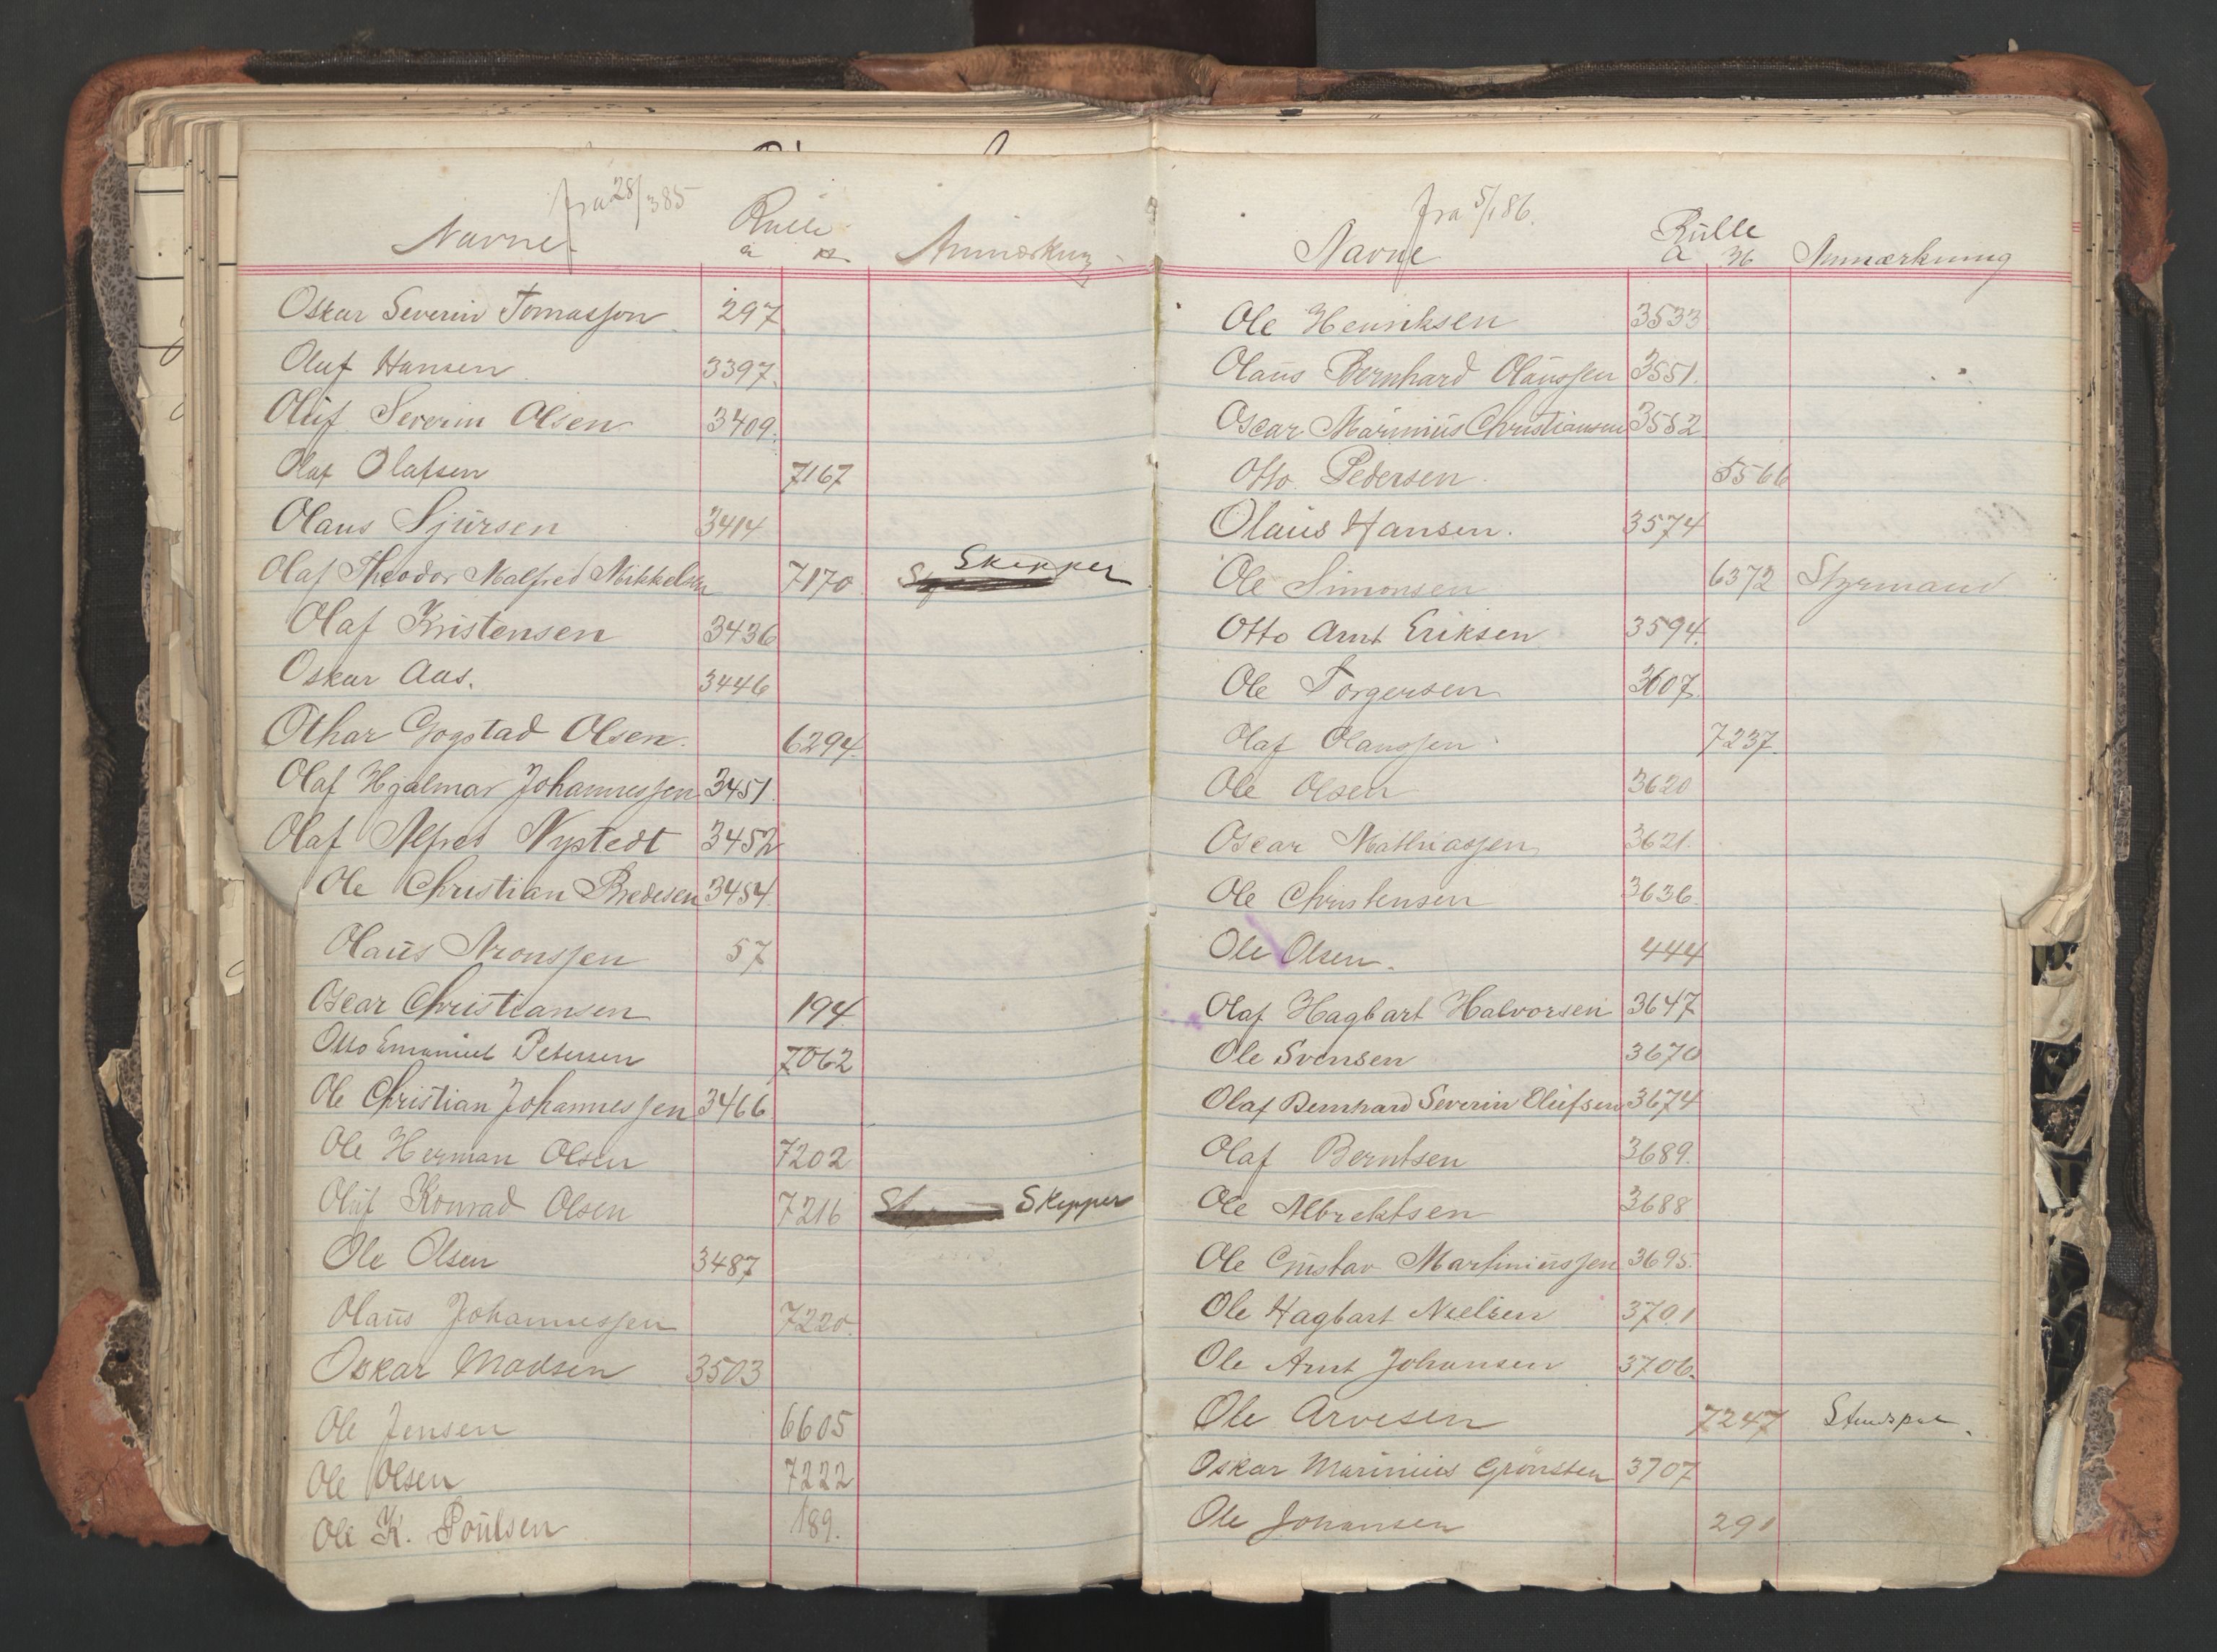 fra 28/3 85
Navne Rulle Anmærkning
a
Oskar Severin Tomassen 297
Oluf Hansen 3397
Oluf Severin Olsen 3409
Olaf Olafsen 7167
Olaus Sjursen 3414
Olaf Theodor Malfred Mikkelsen 7170 Skipper
Olaf Kristensen 3436
Oskar Aas. 3446
Othar Gogstad Olsen. 6294
Olaf Hjalmar Johannessen 3451
Olaf Alfred Nystedt 3452
Ole Christian Bredesen 3454
Olaus Aronssen 57
Oscar Christiansen 194
Otto Emanuel Petersen 7062
Ole Christian Johannessen 3466
Ole Herman Olsen 7202
Oluf Konrad Olsen 7216 Skipper
Ole Olsen 3487
Olaus Johannessen 7220.
Oskar Madsen 3503
Ole Jensen 6605
Ole Olsen 7222
Ole K. Poulsen 189.
fra 5/1 86.
Navne Rulle Anmærkning
a
Ole Henriksen 3533
Olaus Bernhard Olaussen 3551.
Oscar Marinius Christiansen 3552
Otto Pedersen 5566
Olaus Hansen. 3574
Ole Simonsen 6372 Styrmand
Otto Arnt Eriksen 3594.
Ole Torgersen 3607.
Olaf Olaussen 7237.
Ole Olsen 3620
Oscar Mathiassen 3621.
Ole Christensen 3636.
Ole Olsen. 444
Olaf Hagbart Halvorsen 3647
Ole Svensen 3670
Olaf Bernhard Severin Olufsen 3674
Olaf Berntsen 3689.
Ole Albrektsen 3688
Ole Gustav Martiniussen 3695.
Ole Hagbart Nielsen 3701
Ole Arnt Johansen 3706.
Ole Arvesen 7247
Oskar Marinius Grönsten 3707
Ole Johansen 291